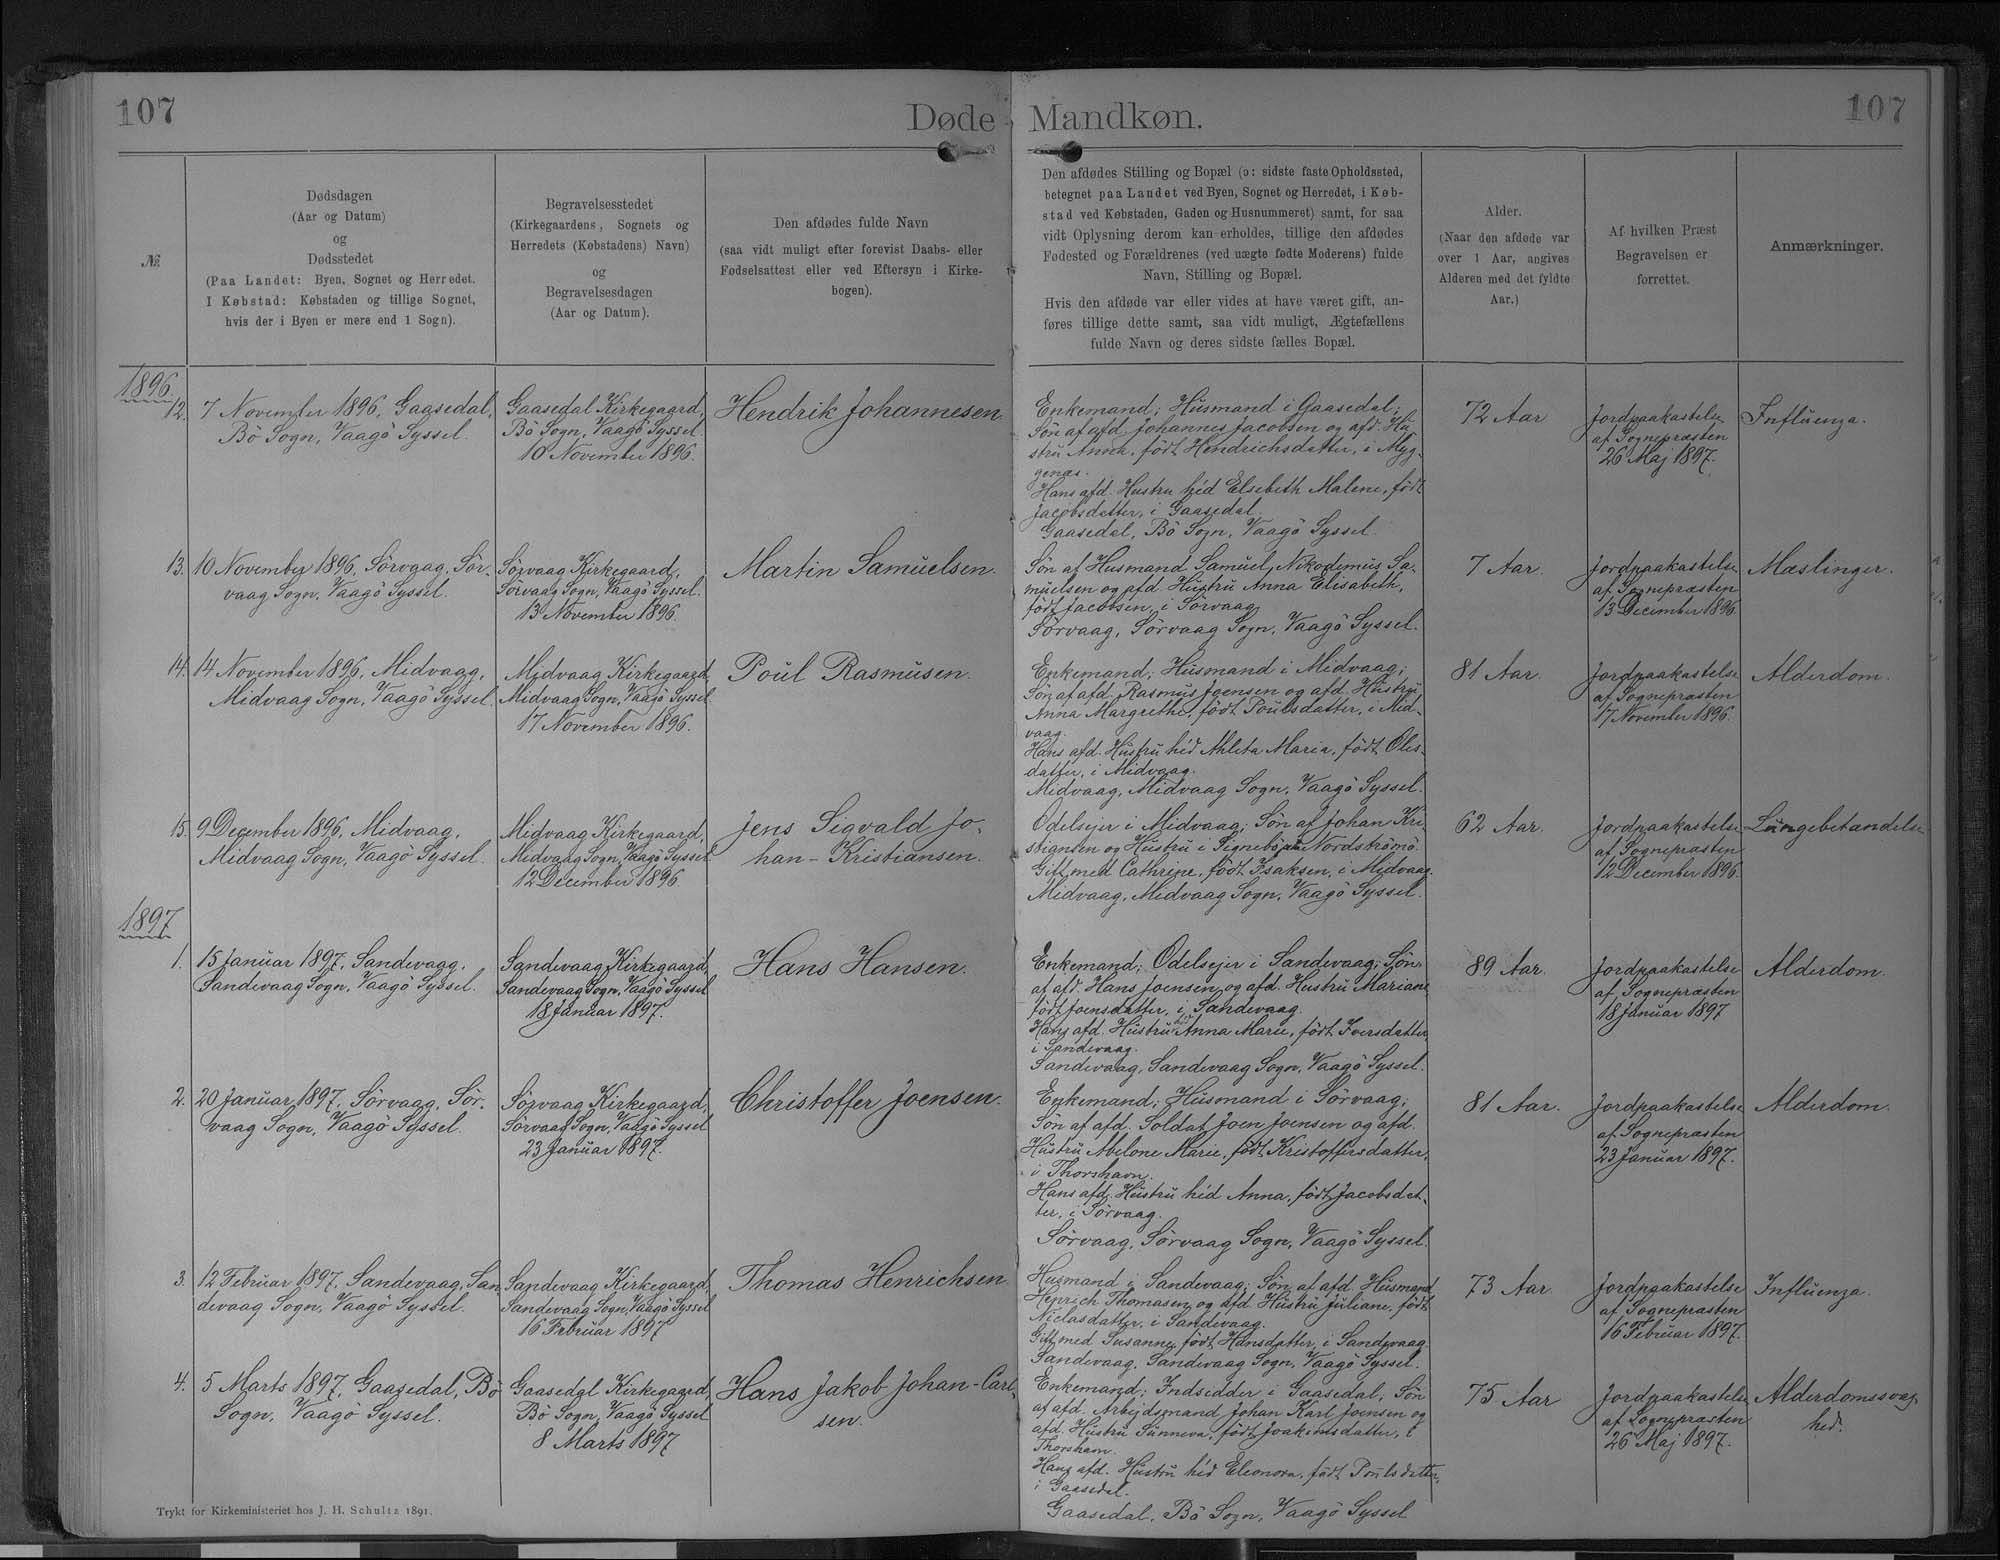 107
Døde Mandkøn.
107
№.
Dødsdagen
(Aar og Datum)
og
Dødsstedet
(Paa Landet: Byen, Sognet og Herredet.
I Købstad: Købstaden og tillige Sognet,
hvis der i Byen er mere end 1 Sogn).
Begravelsesstedet
(Kirkegaardens, Sognets og
Herredets (Købstadens) Navn)
og
Begravelsesdagen
(Aar og Datum).
Den afdødes fulde Navn
(saa vidt muligt efter forevist Daabs- eller
Fødselsattest eller ved Eftersyn i Kirke-
bogen).
Den afdødes Stilling og Bopæl (ɔ: sidste faste Opholdssted,
betegnet paa Landet ved Byen, Sognet og Herredet, i Køb-
stad ved Købstaden, Gaden og Husnummeret) samt, for saa
vidt Oplysning derom kan erholdes, tillige den afdødes
Fødested og Forældrenes (ved uægte fødte Moderens) fulde
Navn, Stilling og Bopæl.
Hvis den afdøde var eller vides at have været gift, an-
føres tillige dette samt, saa vidt muligt, Ægtefællens
fulde Navn og deres sidste fælles Bopæl.
Alder.
(Naar den afdøde var
over 1 Aar, angives
Alderen med det fyldte
Aar.)
Af hvilken Præst
Begravelsen er
forrettet.
Anmærkninger.
1896.
12.
7 November 1896, Gaasedal,
Bö Sogn, Vaagö Syssel.
Gaasedal Kirkegaard,
Bö Sogn, Vaagö Syssel.
10 November 1896.
Hendrik Johannesen
Enkemand; Husmand i Gaasedal;
Søn af afd. Johannes Jacobsen og afd. Hu-
stru Anna, född Hendrichsdatter, i Myg-
genæs.
Hans afd. Hustru hed Elsebeth Malene, född
Jacobsdatter, i Gaasedal.
Gaasedal, Bö Sogn, Vaagö Syssel.
72 Aar
Jordpaakastelse
af Sognepræsten
26 Maj 1897.
Influenza.
13.
10 November 1896, Sörvaag, Sör-
vaag Sogn, Vaagö Syssel.
Sörvaag Kirkegaard,
Sörvaag Sogn, Vaagö Syssel.
13 November 1896.
Martin Samuelsen.
Søn af Husmand Samuel Nikodemus Sa-
muelsen og afd. Hustru Anna Elisabeth,
født Jacobsen, i Sörvaag
Sörvaag, Sörvaag Sogn, Vaagö Syssel.
7 Aar.
Jordpaakastelse
af Sognepræsten
13 December 1896.
Mæslinger.
14.
14 November 1896, Midvaag,
Midvaag Sogn, Vaagö Syssel.
Midvaag Kirkegaard,
Midvaag Sogn, Vaagö Syssel
17 November 1896.
Poul Rasmusen.
Enkemand; Husmand i Midvaag;
Søn af afd. Rasmus Joensen og afd. Hustru
Anna Margrethe, født Poulsdatter, i Mid-
vaag.
Hans afd. Hustru hed Maria, født Oles-
datter, i Midvaag.
Midvaag, Midvaag Sogn, Vaagö Syssel.
81 Aar.
Jordpaakastelse
af Sognepræsten
17 November 1896.
Alderdom.
15.
9 December 1896, Midvaag,
Midvaag Sogn, Vaagö Syssel.
Midvaag Kirkegaard,
Midvaag Sogn, Vaagö Syssel
12 December 1896.
Jens Sigvald Jo-
han-Kristiansen.
Odelsejer i Midvaag; Søn af Johan Kri-
stiansen og Hustru i Signebö paa Nordströmö.
Gift med Cathrine, født Isaksen, i Midvaag.
Midvaag, Midvaag Sogn, Vaagö Syssel.
62 Aar.
Jordpaakastelse
af Sognepræsten
12 December 1896.
Lungebetændelse
1897
1.
15 Januar 1897, Sandevaag,
Sandevaag Sogn, Vaagö Syssel.
Sandevaag Kirkegaard,
Sandevaag Sogn, Vaagö Syssel
18 Januar 1897.
Hans Hansen.
Enkemand; Odelsejer i Sandevaag; Søn
af afd. Hans Joensen og afd. Hustru Mariane
født Joensdatter, i Sandevaag.
Hans afd. Hustru hed Anna Marie, født Iversdatter
i Sandevaag.
Sandevaag, Sandevaag Sogn, Vaagö Syssel.
89 Aar.
Jordpaakastelse
af Sognepræsten
18 Januar 1897
Alderdom.
2.
20 Januar 1897, Sörvaag, Sör-
vaag Sogn, Vaagö Syssel.
Sörvaag Kirkegaard,
Sörvaag Sogn, Vaagö Syssel
23 Januar 1897.
Christoffer Joensen.
Enkemand; Husmand i Sörvaag;
Søn af afd. Soldat Joen Joensen og afd.
Hustru Abelone Marie, født Kristoffersdatter,
i Thorshavn.
Hans afd. Hustru hed Anna, født Jacobsdat-
ter, i Sörvaag.
Sörvaag, Sörvaag Sogn, Vaagö Syssel.
81 Aar.
Jordpaakastelse
af Sognepræsten
23 Januar 1897.
Alderdom.
3.
12 Februar 1897, Sandevaag, San
devaag Sogn, Vaagö Syssel.
Sandevaag Kirkegaard,
Sandevaag Sogn, Vaagö Syssel
16 Februar 1897
Thomas Henrichsen
Husmand i Sandevaag; Søn af afd. Husmand
Henrich Thomasen og afd. Hustru Juliane, født
Niclasdatter, i Sandevaag.
Gift med Susanne, født Hansdatter, i Sandevaag.
Sandevaag, Sandevaag Sogn, Vaagö Syssel.
73 Aar.
Jordpaakastelse
af Sognepræsten
16 Februar 1897.
Influenza.
4.
5 Marts 1897, Gaasedal, Bö
Sogn, Vaagö Syssel.
Gaasedal Kirkegaard,
Bö Sogn, Vaagö Syssel
8 Marts 1897
Hans Jakob Johan-Carl-
sen.
Enkemand; Indsidder i Gaasedal; Søn
af afd. Arbejdsmand Johan Karl Joensen og
afd. Hustru Sunneva, født Joakimsdatter, i
Thorshavn.
Hans afd. Hustru hed Eleonora, født Poulsdatter,
i Gaasedal.
Gaasedal, Bö Sogn, Vaagö Syssel
75 Aar
Jordpaakastelse
af Sognepræsten
26 Maj 1897.
Alderdomssvag-
hed.
Trykt for Kirkeministeriet hos J. H. Schultz 1891.